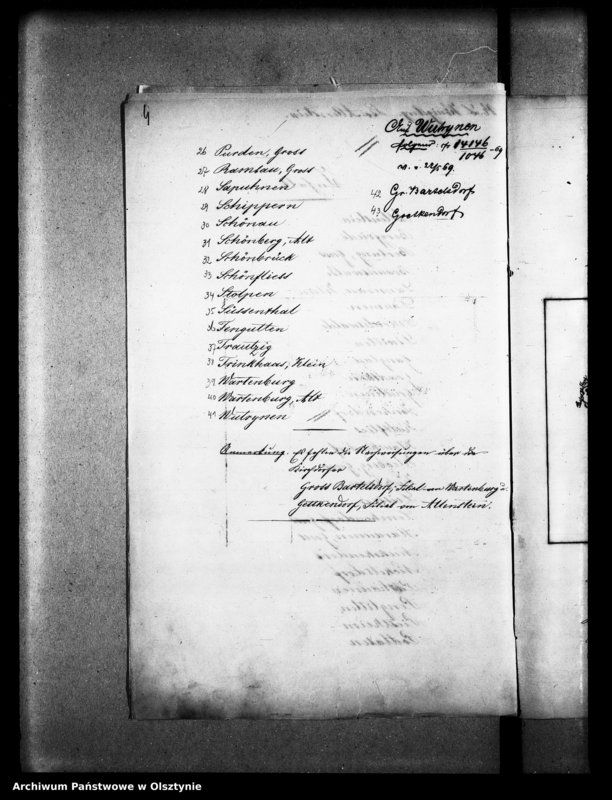 4
26 Purden, Gross
27 Ramsau, Gross
28 Saputnen
29 Schippern
30 Schönau
31 Schönberg, Alt
32 Schönbrück
33 Schönfliess
34 Stolpen
35 Süssenthal
36 Tengutten
37 Trautzig
38 Trinkhaus, Klein
39 Wartenburg
40 Wartenburg, Alt
41 Wutrynen //
// Wutrynen
14146
1046 69
v. 22/5 69.
42 Gr. Bartelsdorf
43 Gettkendorf
Anmerkung. Es fehlen die Nachweisungen über die
Kirchdörfer
Gross Bartelsdorf, Filial von Wartenburg u.
Gettkendorf, Filial von Allenstein.
Archiwum Państwowe w Olsztynie